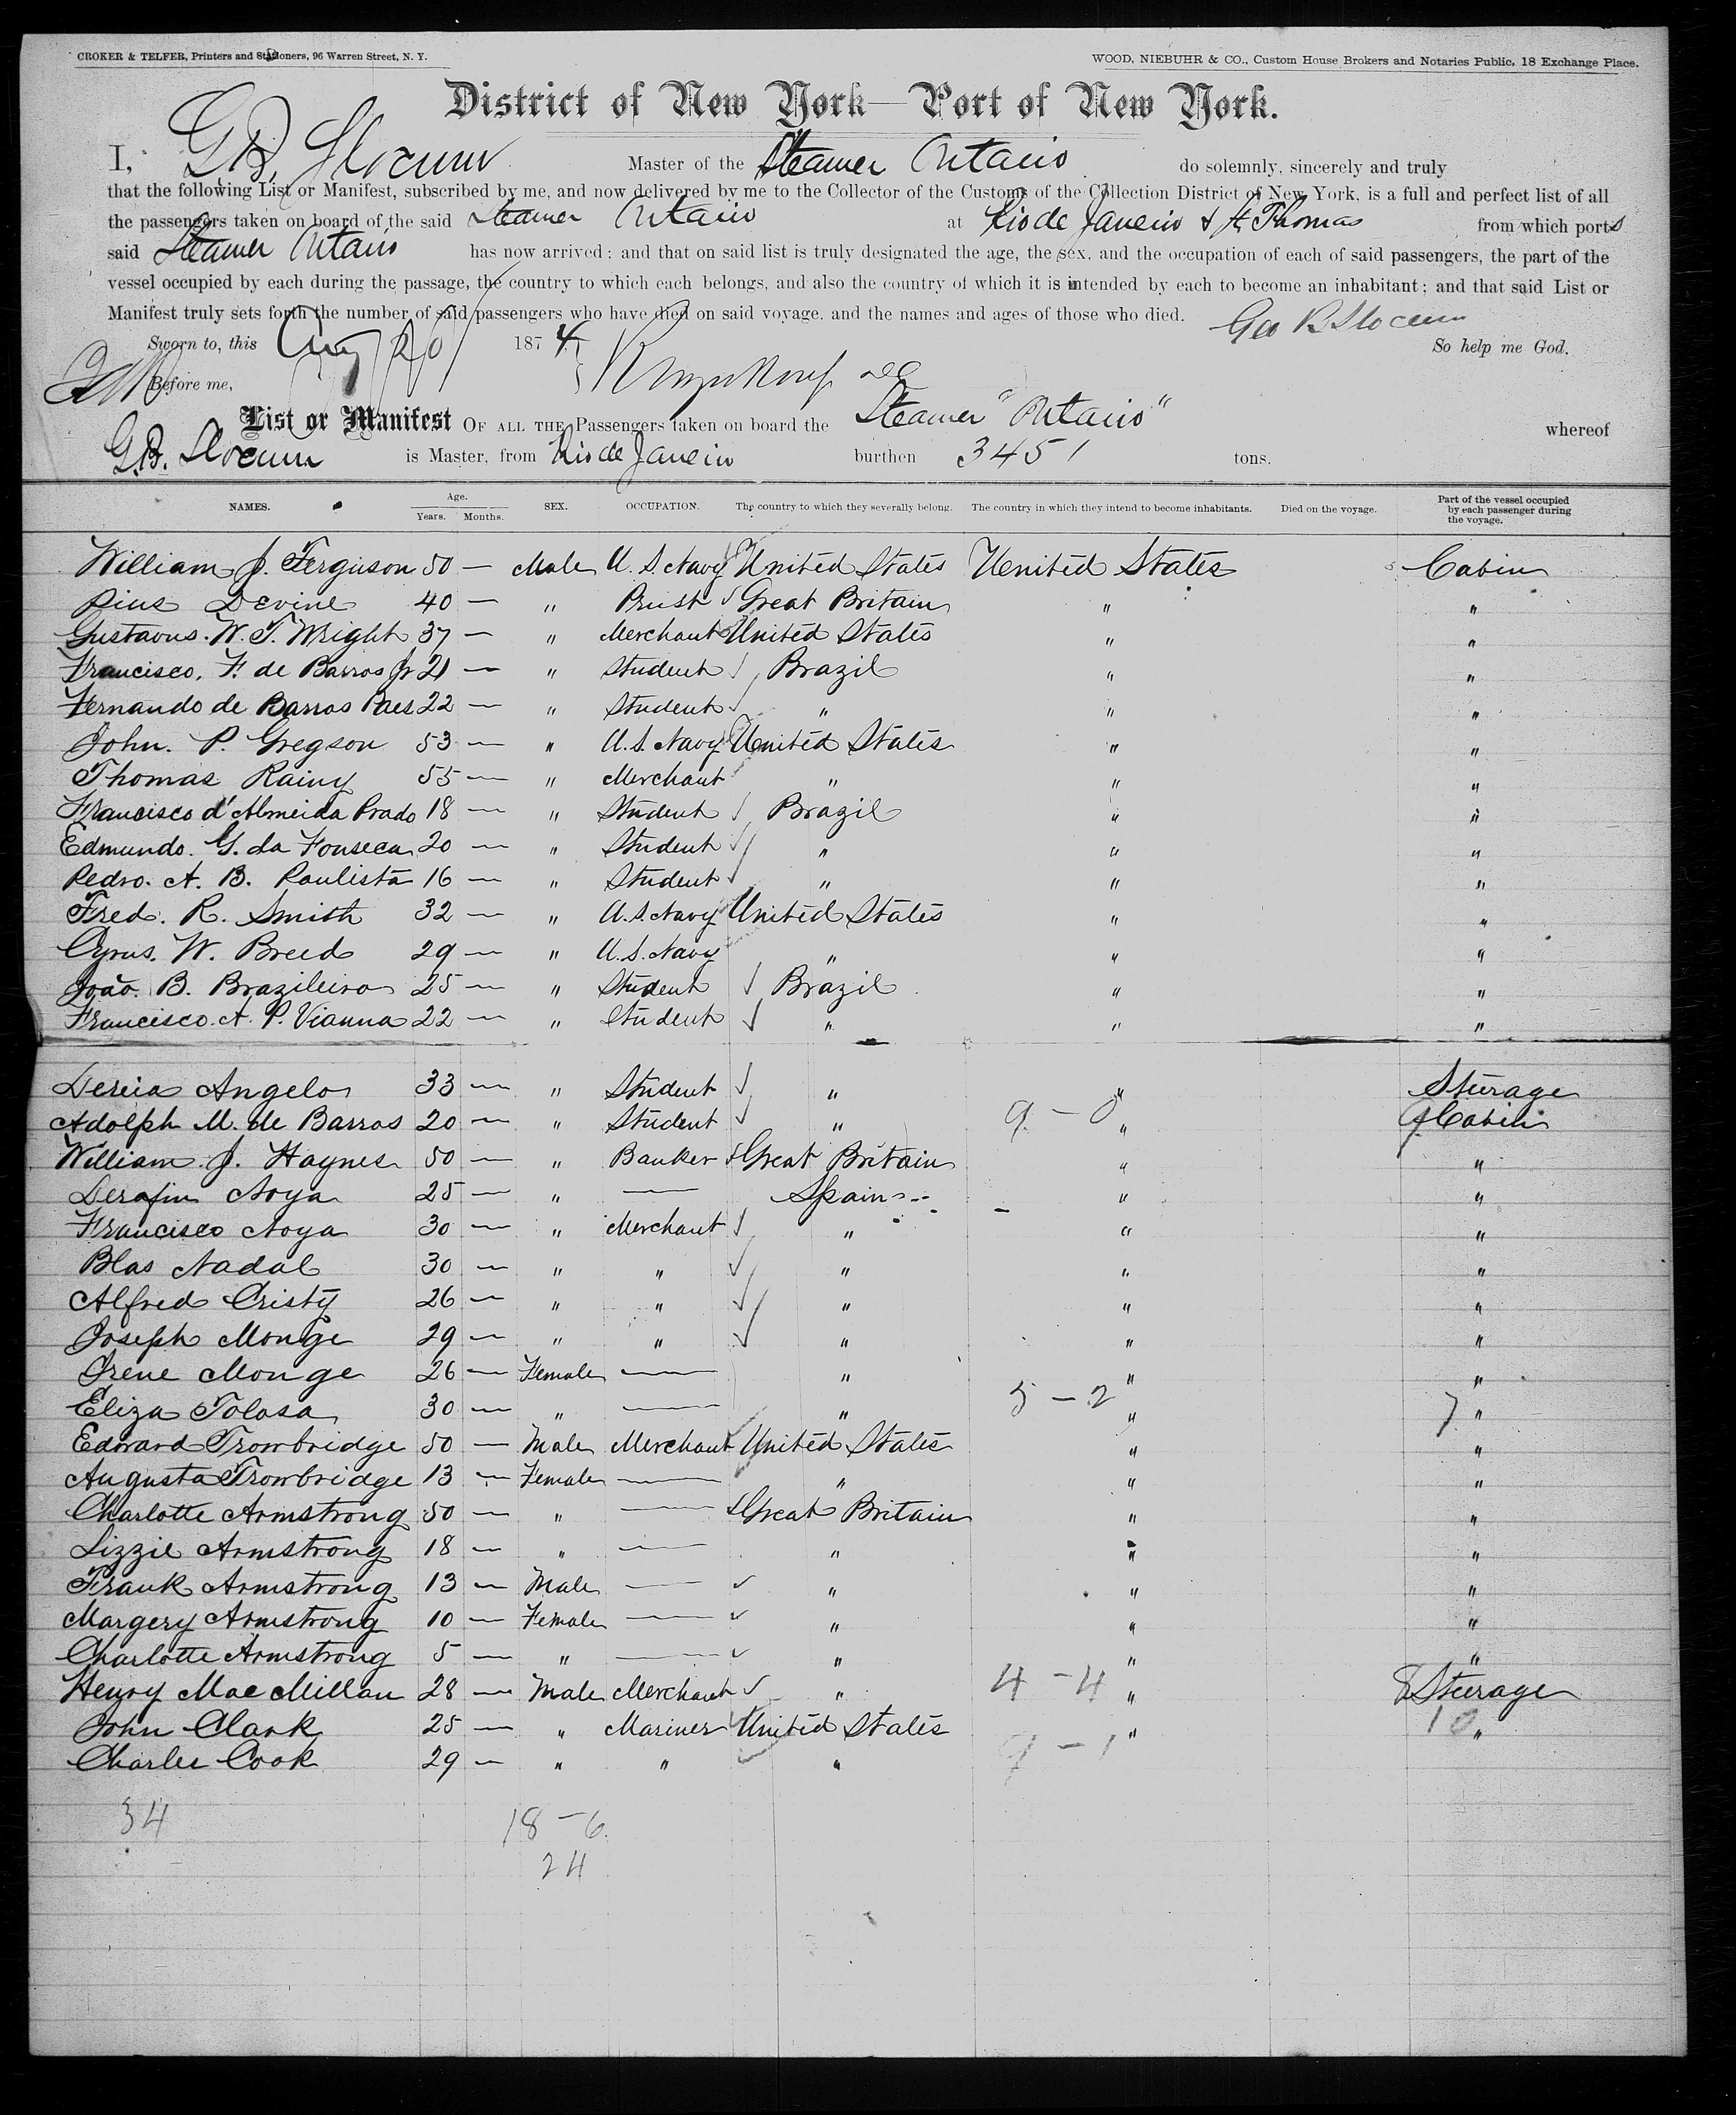 CROKER & TELFER, Printers and Stationers, 96 Warren Street, N. Y. WOOD, NIEBUHR & CO., Custom House Brokers and Notaries Public, 18 Exchange Place.
District of New York—Port of New York.
I, G B. Slocum Master of the Steamer Ontario do solemnly, sincerely and truly
that the following List or Manifest, subscribed by me, and now delivered by me to the Collector of the Customs of the Collection District of New York, is a full and perfect list of all
the passengers taken on board of the said Steamer Ontario at Rio de Janeiro & St Thomas from which ports
said Steamer Ontario has now arrived; and that on said list is truly designated the age, the sex, and the occupation of each of said passengers, the part of the
vessel occupied by each during the passage, the country to which each belongs, and also the country of which it is intended by each to become an inhabitant; and that said List or
Manifest truly sets forth the number of said passengers who have died on said voyage, and the names and ages of those who died. Geo B Slocum
Sworn to, this Aug 20 1874 So help me God.
Before me,
List or Manifest OF ALL THE Passengers taken on board the Steamer "Ontario" whereof
G.B. Slocum is Master, from Rio de Janeiro burthen 3451 tons.
NAMES. Age. Years. Months. SEX. OCCUPATION. The country to which they severally belong. The country in which they intend to become inhabitants. Died on the voyage. Part of the vessel occupied by each passenger during the voyage.
William J. Ferguson 50 — Male U. S. Navy United States United States Cabin
Pius Devine 40 — " Priest Great Britain " "
Gustavus. W. T. Wright 37 — " Merchant United States " "
Francisco. F. de Barros Jr 21 — " Student Brazil " "
Fernando de Barros Paes 22 — " Student " " "
John. P. Gregson 53 — " U. S. Navy United States " "
Thomas Rainy 55 — " Merchant " " "
Francisco d'Almeida Prado 18 — " Student Brazil " "
Edmundo. G. da Fonseca 20 — " Student " " "
Pedro. A. B. Paulista 16 — " Student " " "
Fred. R. Smith 32 — " U. S. Navy United States " "
Cyrus. W. Breed 29 — " U. S. Navy " " "
João. B. Brazileiro 25 — " Student Brazil " "
Francisco. A. P. Vianna 22 — " Student " " "
Angelo 33 — " Student " " Sterage
Adolph M. de Barros 20 — " Student " 9 — 0 " 9 Cabin
William. J. Haynes 50 — " Banker Great Britain " "
Serafin Noya 25 — " — Spain " "
Francisco Noya 30 — " Merchant " " "
Blas Nadal 30 — " " " " "
Alfred Cristy 26 — " " " " "
Joseph Monge 29 — " " " " "
Irene Monge 26 — Female — " " "
Eliza Tolosa 30 — " — " 5 — 2 " 7 "
Edward Trowbridge 50 — Male Merchant United States " "
Augusta Trowbridge 13 — Female — " " "
Charlotte Armstrong 50 — " — Great Britain " "
Lizzie Armstrong 18 — " — " " "
Frank Armstrong 13 — Male — " " "
Margery Armstrong 10 — Female — " " "
Charlotte Armstrong 5 — " — " " "
Henry MacMillan 28 — Male Merchant " 4 — 4 " 8 Sterage
John Clark 25 — " Mariner United States " 10 "
Charles Cook 29 — " " " 9 — 1
34 18 — 6
24